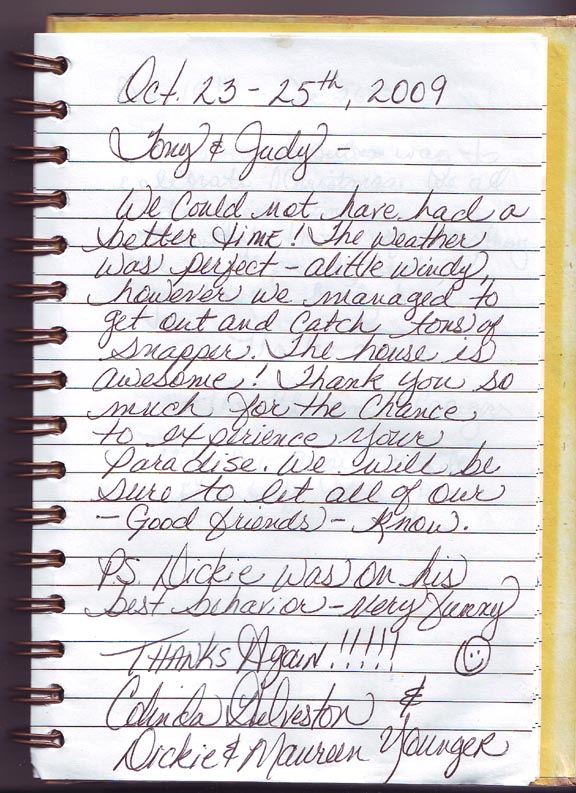 Oct. 23 - 25th, 2009
Tony & Judy -
We could not have had a
better time! The weather
was perfect - alittle windy,
however we managed to
get out and catch tons of
snapper. The house is
awesome! Thank you so
much for the chance
to experience your
paradise. We will be
sure to let all of our
- Good friends - know.
PS. Dickie was on his
best behavior - very funny
THANKS Again!!!!!
Colinda &
Dickie & Maureen Younger